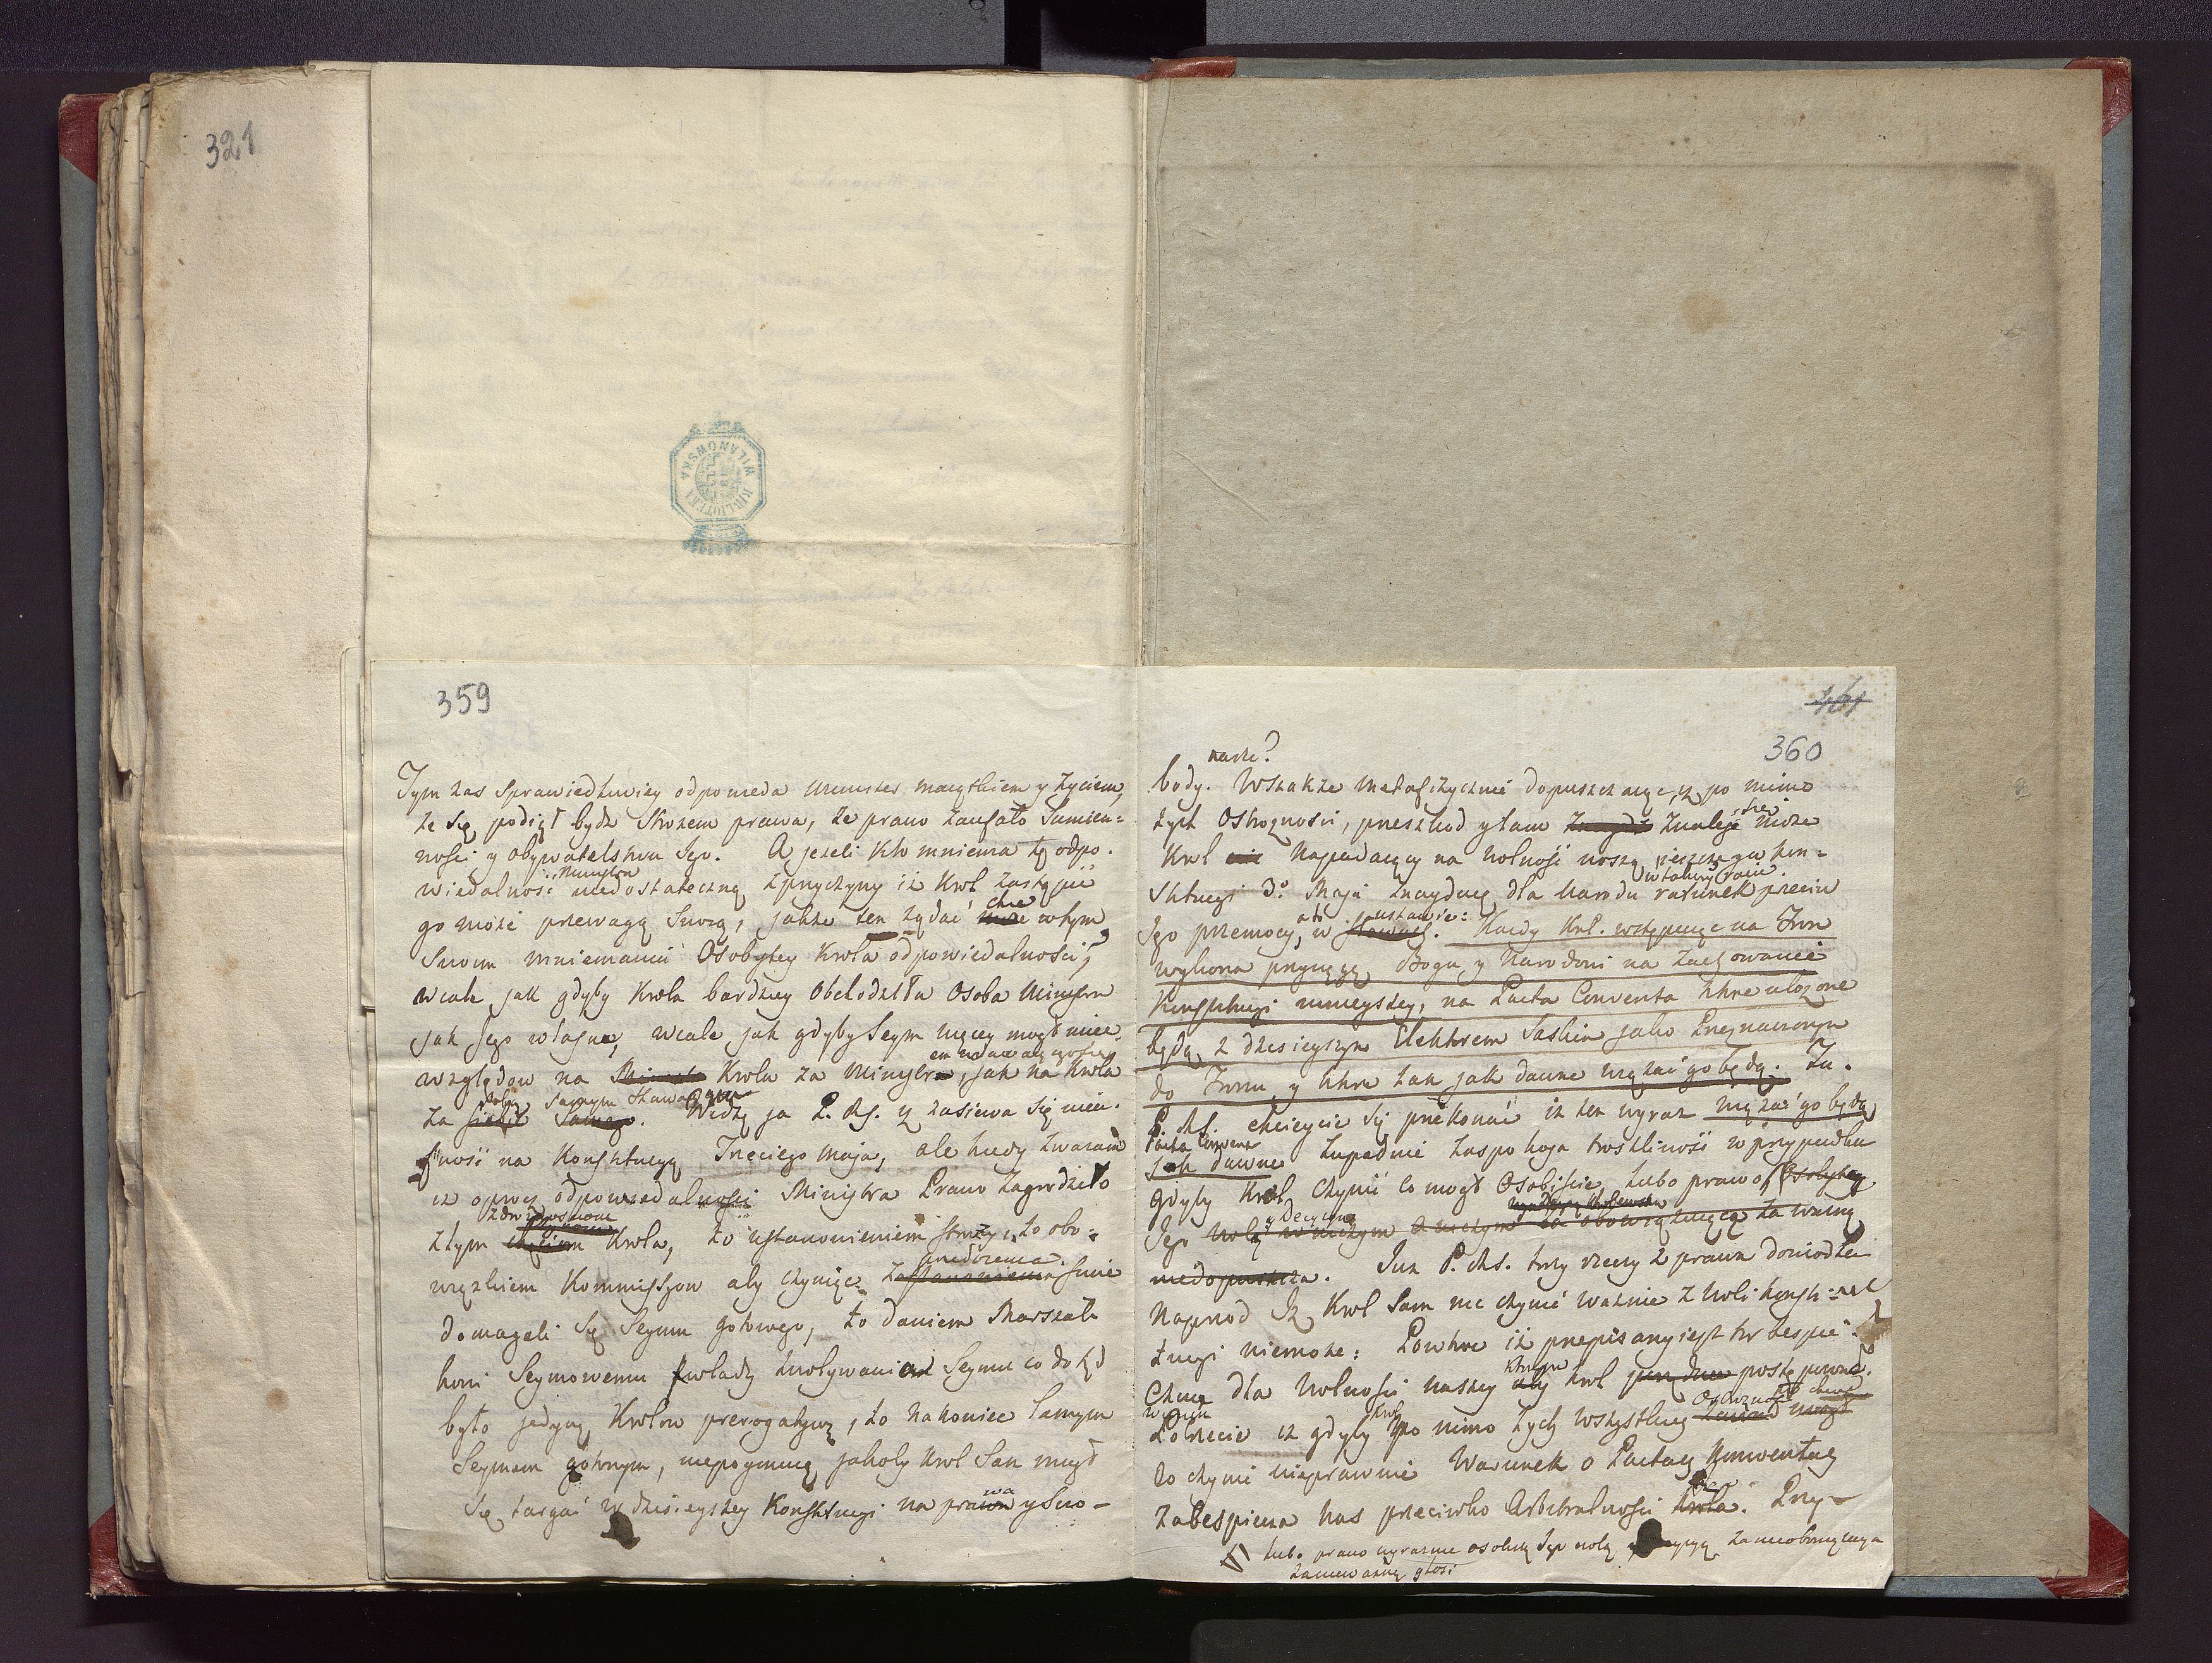 321
BIBLIOTEKA WILANOWSKA
359
Tym zas sprawiedliwiey odpowieda Minister maiątkiem y życiem,
że się podiął bydź Strożem prawa, że prawo zaufało Sumien=
nosci y obywatelstwu Jego. A jeżeli kto mniema tę odpo.
wiedalność Ministra niedostateczną zprzyczyny iż Krol zastąpić
go może przewagą Swoią, jakże ten żądać chce wtym
Swoim mniemaniu Osobistey Krola odpowiedalności,
wcale jak gdyby Krola bardziey obchodziła Osoba Ministra
jak Jego własna, wcale jak gdyby Seym więcey mogł miec
względow na Krola za Ministrem, jak na Krola
za sobą samym. Widzę ja P. M. iż zasiewa się nieu.
fność na Konstytucyą Trzeciego Maja, ale kiedy zważam
iż oprocz odpowiedalności Ministra Prawo zagrodziło
złym Krola, to ustanowieniem straży, to obo=
wiązkiem Kommissyow aby czyniąc Swoie
domagali się Seymu gotowego, to daniem Marszał
kowi Seymowemu władzy zwoływania Seymu co dotąd
było jedyną Krolow prerogatywą, to nakoniec samym
Seymem gotowym, niepoymuię jakoby Krol Sam mogł
się targać w dzisieyszey Konstytucyi na prawa y Swo-
461
360
nasze?
body. Wszakże metafizycznie dopuszczaiąc, iż po mimo
tych Ostrożności, przeszkod y tam znaleść się może
Krol napadaiący na Wolność naszą, ieszcze w kon=
stytucyi 3º Maja znayduię dla Narodu w takim razie ratunek przeciw
Jego przemocy, a to w ustawie: Każdy Krol wstępuiąc na Tron
wykona przysięgę Bogu y Narodowi na zachowanie
Konstytucyi ninieyszey, na Pacta Conventa ktore ułożone
będą z dzisieyszym Elektorem Saskim jako przeznaczonym
do Tronu y ktore tak jak dawne wiązać go będą. Tu.
P. M. chcieycie się przekonać iż ten wyraz wiązać go będą
Pacta Conventa jak dawne zupełnie zaspokaja troskliwość w przypadku
gdyby Krol czynić co mogł Osobiście, lubo prawo Osobistey
Jego woli w niczym za obowiązuiącą za ważną
niedopuszcza. Jux P. M. trzy rzeczy z prawa dowiodłem
Naprzod Iż Krol Sam nic czynić ważnie z woli konsty-
tucyi niemoże: Powtore iż przepisany jest tor bespie-
czny dla Wolności naszey ktorym Krol postępować.
Potrzecie iż gdyby Krol po mimo tych wszystkich Ostrożności
co czynił nieprawnie Warunek o Pactach Konwentach
zabespiecza nas przeciwko Arbitralności Krola. Przy-
lubo prawo wyraźnie osobistą Jego wolą za nieobowiązuiącą
za nieważną głosi